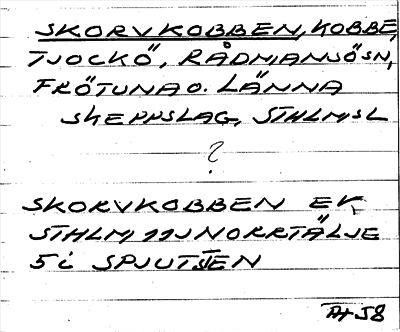 SKORVKOBBEN, KOBBE,
TJOCKÖ, RÅDMANSÖ SN,
FRÖTUNA O. LÄNNA
SKEPPSLAG, STHLMS L
?
SKORVKOBBEN EK
STHLM 11J NORRTÄLJE
5 i